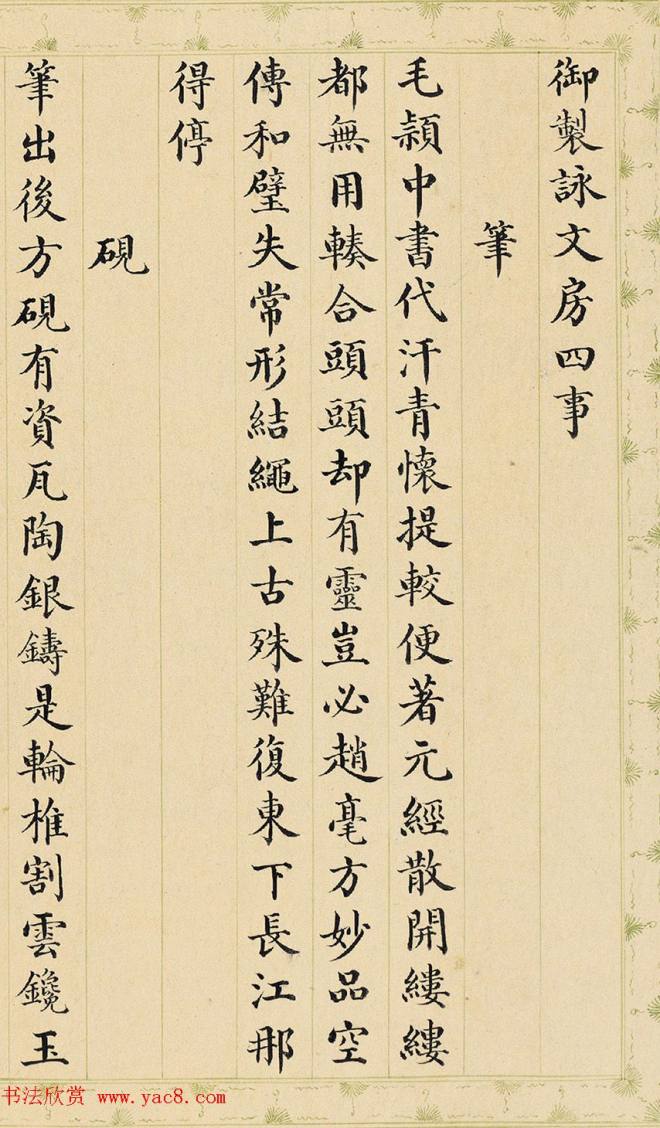 御製詠文房四事
筆
毛頴中書代汗青懷提較便著元經散開縷縷
都無用輳合頭頭却有靈豈必趙毫方妙品空
傳和璧失常形結繩上古殊難復東下長江那
得停
硯
筆出後方硯有資瓦陶銀鑄是輪椎割雲鑱玉
书法欣赏 www.yac8.com